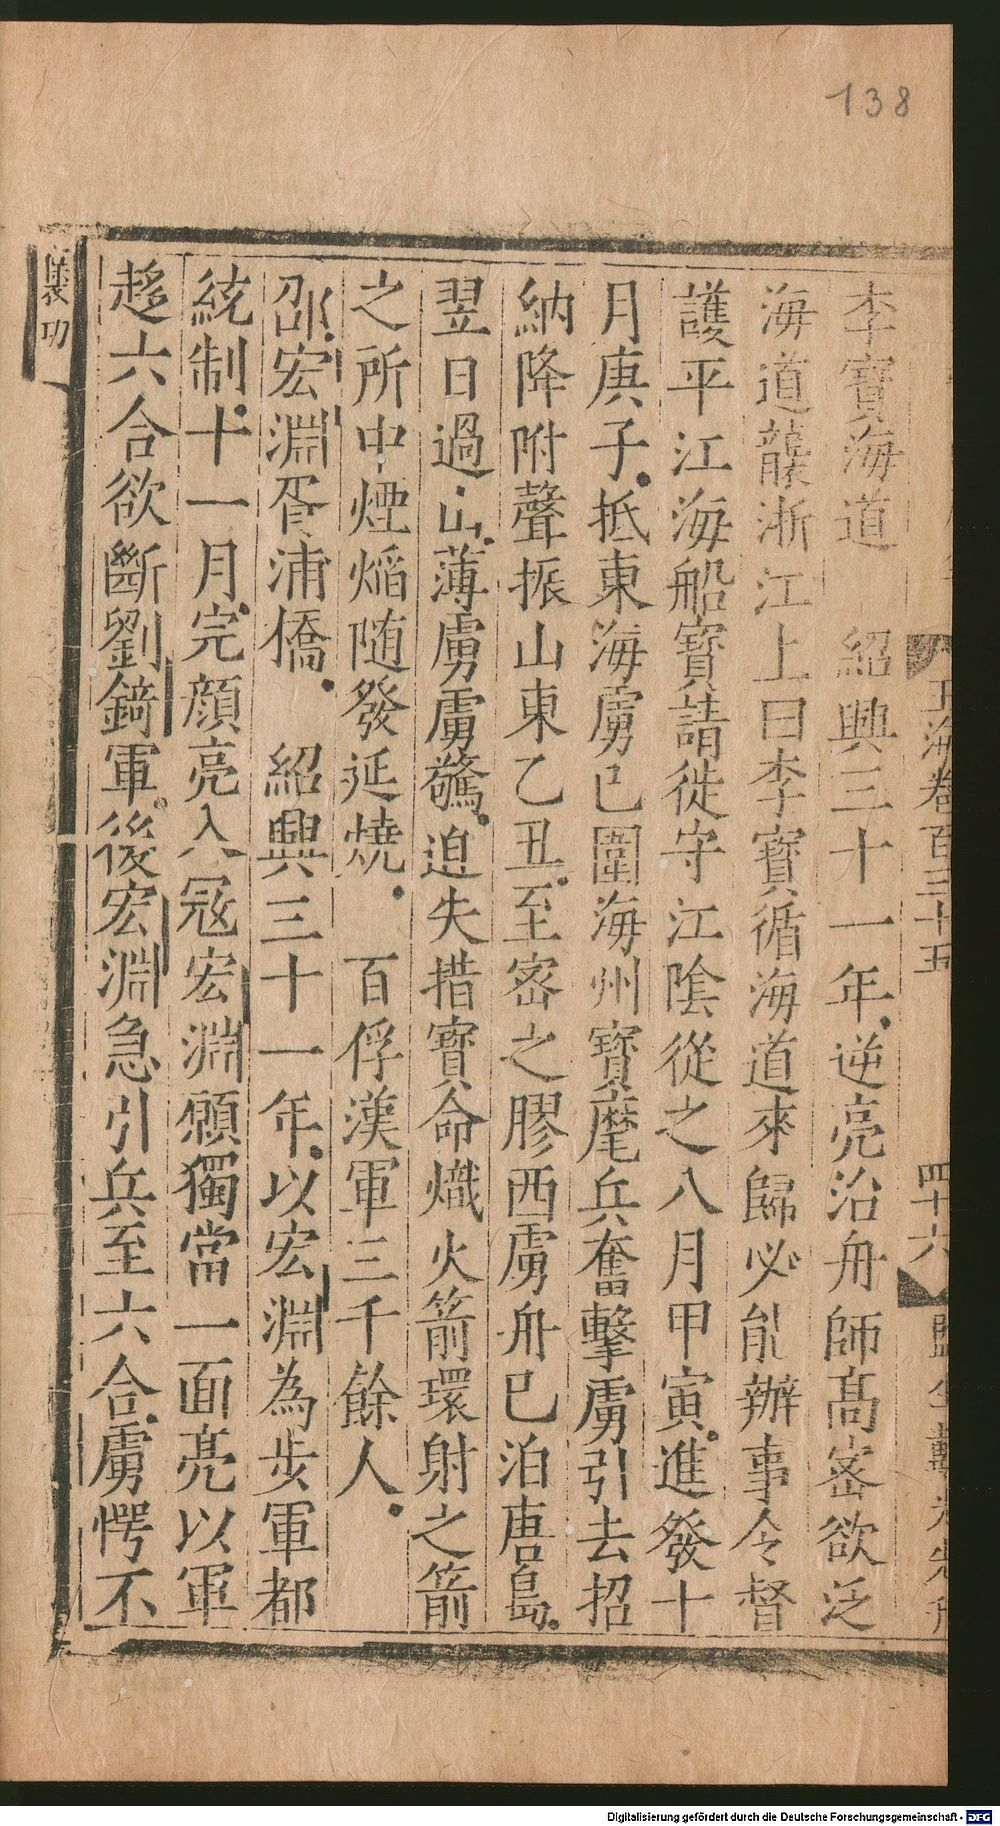 138
玉海卷百三十五　四十六
李寶海道　紹興三十一年逆亮治舟師高宻欲泛
海道襲浙江上曰李寶循海道來歸必能辦事令督
護平江海船寶請徙守江陰從之八月甲寅進發十
月庚子抵東海虜已圍海州寶麾兵奮擊虜引去招
納降附聲振山東乙丑至宻之膠西虜舟已泊唐島
翌日過山薄虜虜驚迫失措寶命熾火箭環射之箭
之所中煙焰随發延燒　百俘漢軍三千餘人
邵宏淵胥浦橋　紹興三十一年以宏淵為步軍都
統制十一月完顔亮入冦宏淵願獨當一面亮以軍
趍六合欲斷劉錡軍後宏淵急引兵至六合虜愕不
襃功
Digitalisierung gefördert durch die Deutsche Forschungsgemeinschaft - DFG